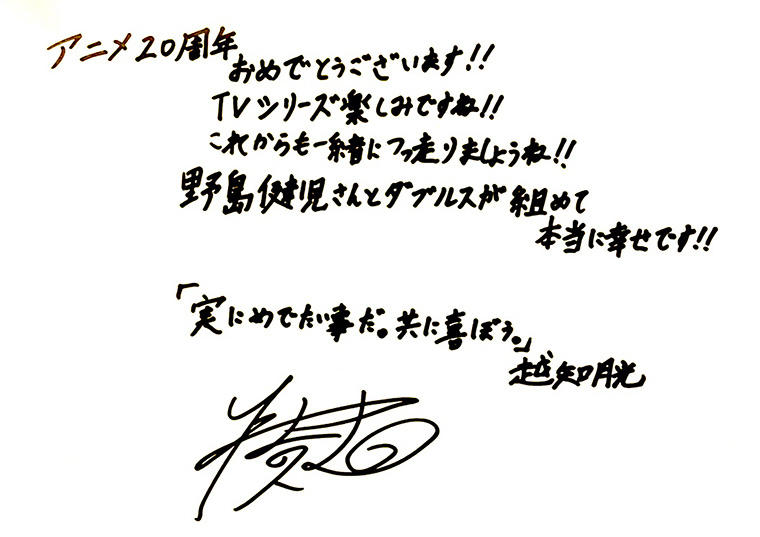 アニメ20周年
おめでとうございます!!
TVシリーズ楽しみですね!!
これからも一緒につっ走りましょうね!!
野島健児さんとダブルスが組めて
本当に幸せです!!
「実にめでたい事だ。共に喜ぼう。」
越知月光